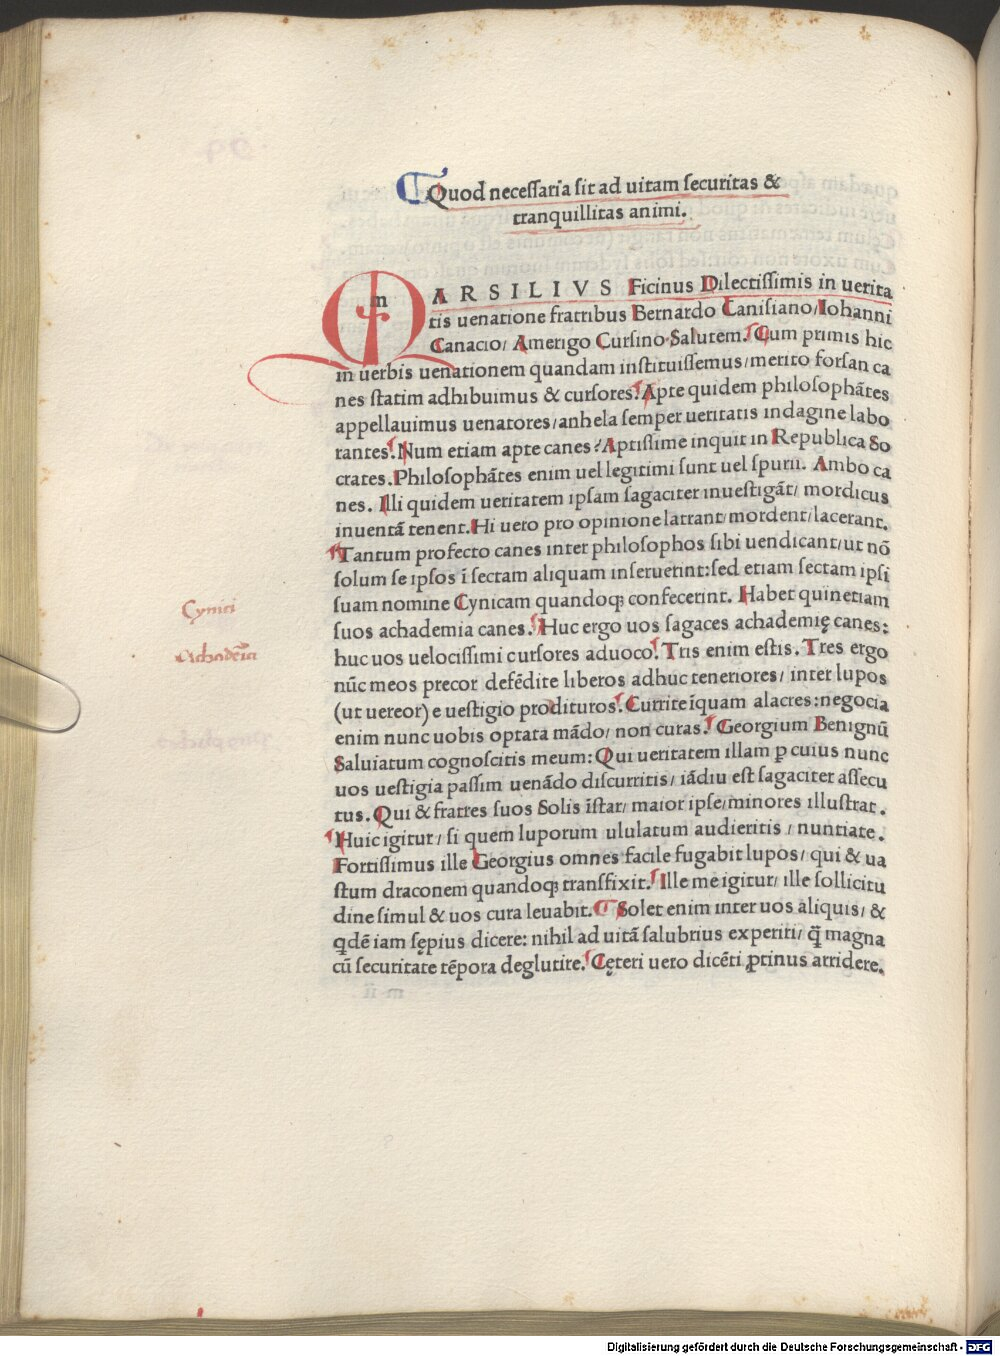 Quod necessaria sit ad uitam securitas &
tranquillitas animi.
m
MARSILIVS Ficinus Dilectissimis in uerita
tis uenatione fratribus Bernardo Canisiano/Iohanni
Canacio/ Amerigo Cursino Salutem. Cum primis hic
in uerbis uenationem quandam instituissemus/merito forsan ca
nes statim adhibuimus & cursores. Apte quidem philosophātes
appellauimus uenatores/anhela semper ueritatis indagine labo
rantes. Num etiam apte canes? Aptissime inquit in Republica So
crates. Philosophātes enim uel legitimi sunt uel spurii. Ambo ca
nes. Illi quidem ueritatem ipsam sagaciter inuestigāt/ mordicus
inuentā tenent. Hi uero pro opinione latrant/mordent/lacerant.
Tantum profecto canes inter philosophos sibi uendicant/ut nō
solum se ipsos ī sectam aliquam inseruerint:sed etiam sectam ipsi
suam nomine Cynicam quandoq; confecerint. Habet quinetiam
suos achademia canes. Huc ergo uos sagaces achademię canes:
huc uos uelocissimi cursores aduoco. Tris enim estis. Tres ergo
nūc meos precor defēdite liberos adhuc teneriores/ inter lupos
(ut uereor) e uestigio prodituros. Currite īquam alacres:negocia
enim nunc uobis optata mādo/ non curas. Georgium Benignū
Saluiatum cognoscitis meum: Qui ueritatem illam ꝑ cuius nunc
uos uestigia passim uenādo discurritis/ iādiu est sagaciter assecu
tus. Qui & fratres suos Solis īstar/ maior ipse/minores illustrat.
Huic igitur/ si quem luporum ululatum audieritis / nuntiate.
Fortissimus ille Georgius omnes facile fugabit lupos/ qui & ua
stum draconem quandoq; transfixit. Ille me igitur/ ille sollicitu
dine simul & uos cura leuabit. Solet enim inter uos aliquis/ &
qdē iam sępius dicere: nihil ad uitā salubrius experiri/ q̄ magna
cū securitate tēpora deglutire. Cęteri uero dicēti ꝓtinus arridere.
Cynici
Achademia
Digitalisierung gefördert durch die Deutsche Forschungsgemeinschaft - DFG